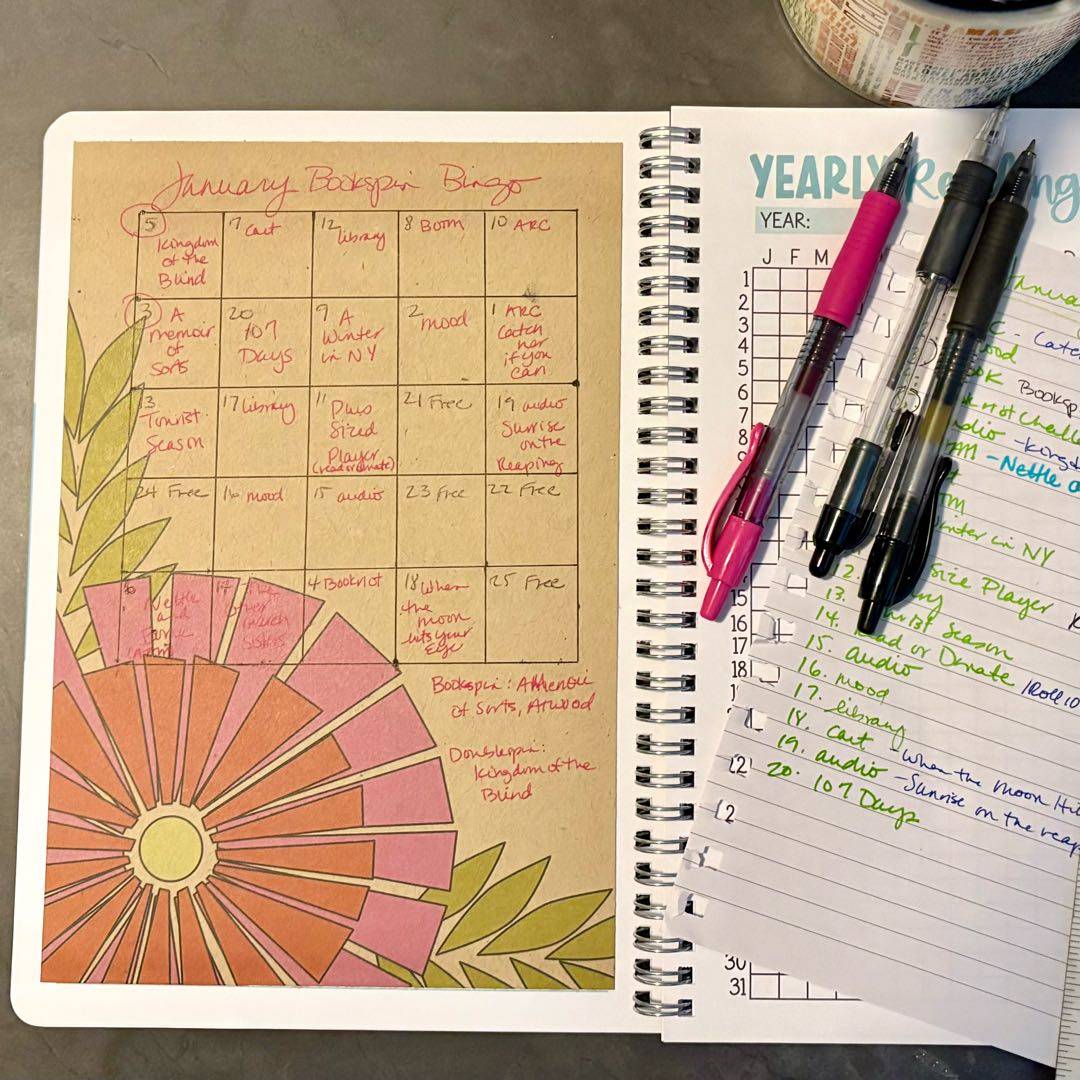 January Bookspin Bingo
5 Kingdom of the Blind
7 Cart
12 library
8 BOTM
10 ARC
3 A memoir of sorts
20 107 Days
9 A Winter in NY
2 mood
1 ARC Catch her if you can
13 Tourist Season
17 library
11 Plus Sized Player (read or donate)
21 Free
19 audio Sunrise on the Reaping
24 Free
16 mood
15 audio
23 Free
22 Free
6 Nettle and Bone
14 The other March Sisters
4 Booknot
18 When the moon hits your Eye
25 Free
Bookspin: A Memoir
of Sorts, Atwood
Doublespin:
Kingdom of the
Blind
YEARLY Reading
YEAR:
J F M
1
2
3
4
5
6
7
8
15
16
17
18
30
31
Janua
C - Catc
ood
OK Booksp
not Challe
dio - Kingd
TM - Nettle a
TM
inter in NY
Size Player
13. rist Season
14. Read or Donate
15. audio
16. mood
17. library
18. cart When the Moon Hit
19. audio - Sunrise on the reap
20. 107 Days